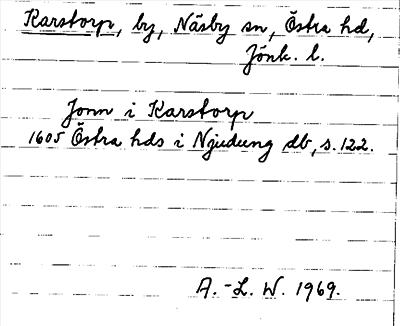 Karstorp, by, Näsby sn, Östra hd,
Jönk. l.
Jonn i Karstorp
1605 Östra hds i Njudung db, s. 122.
A.-L. W. 1969.